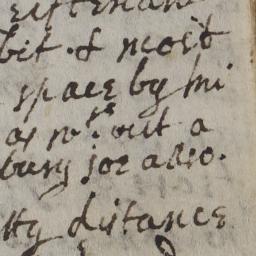 bit of most
space by mi
as wth out a
bury joe also.
tty distance